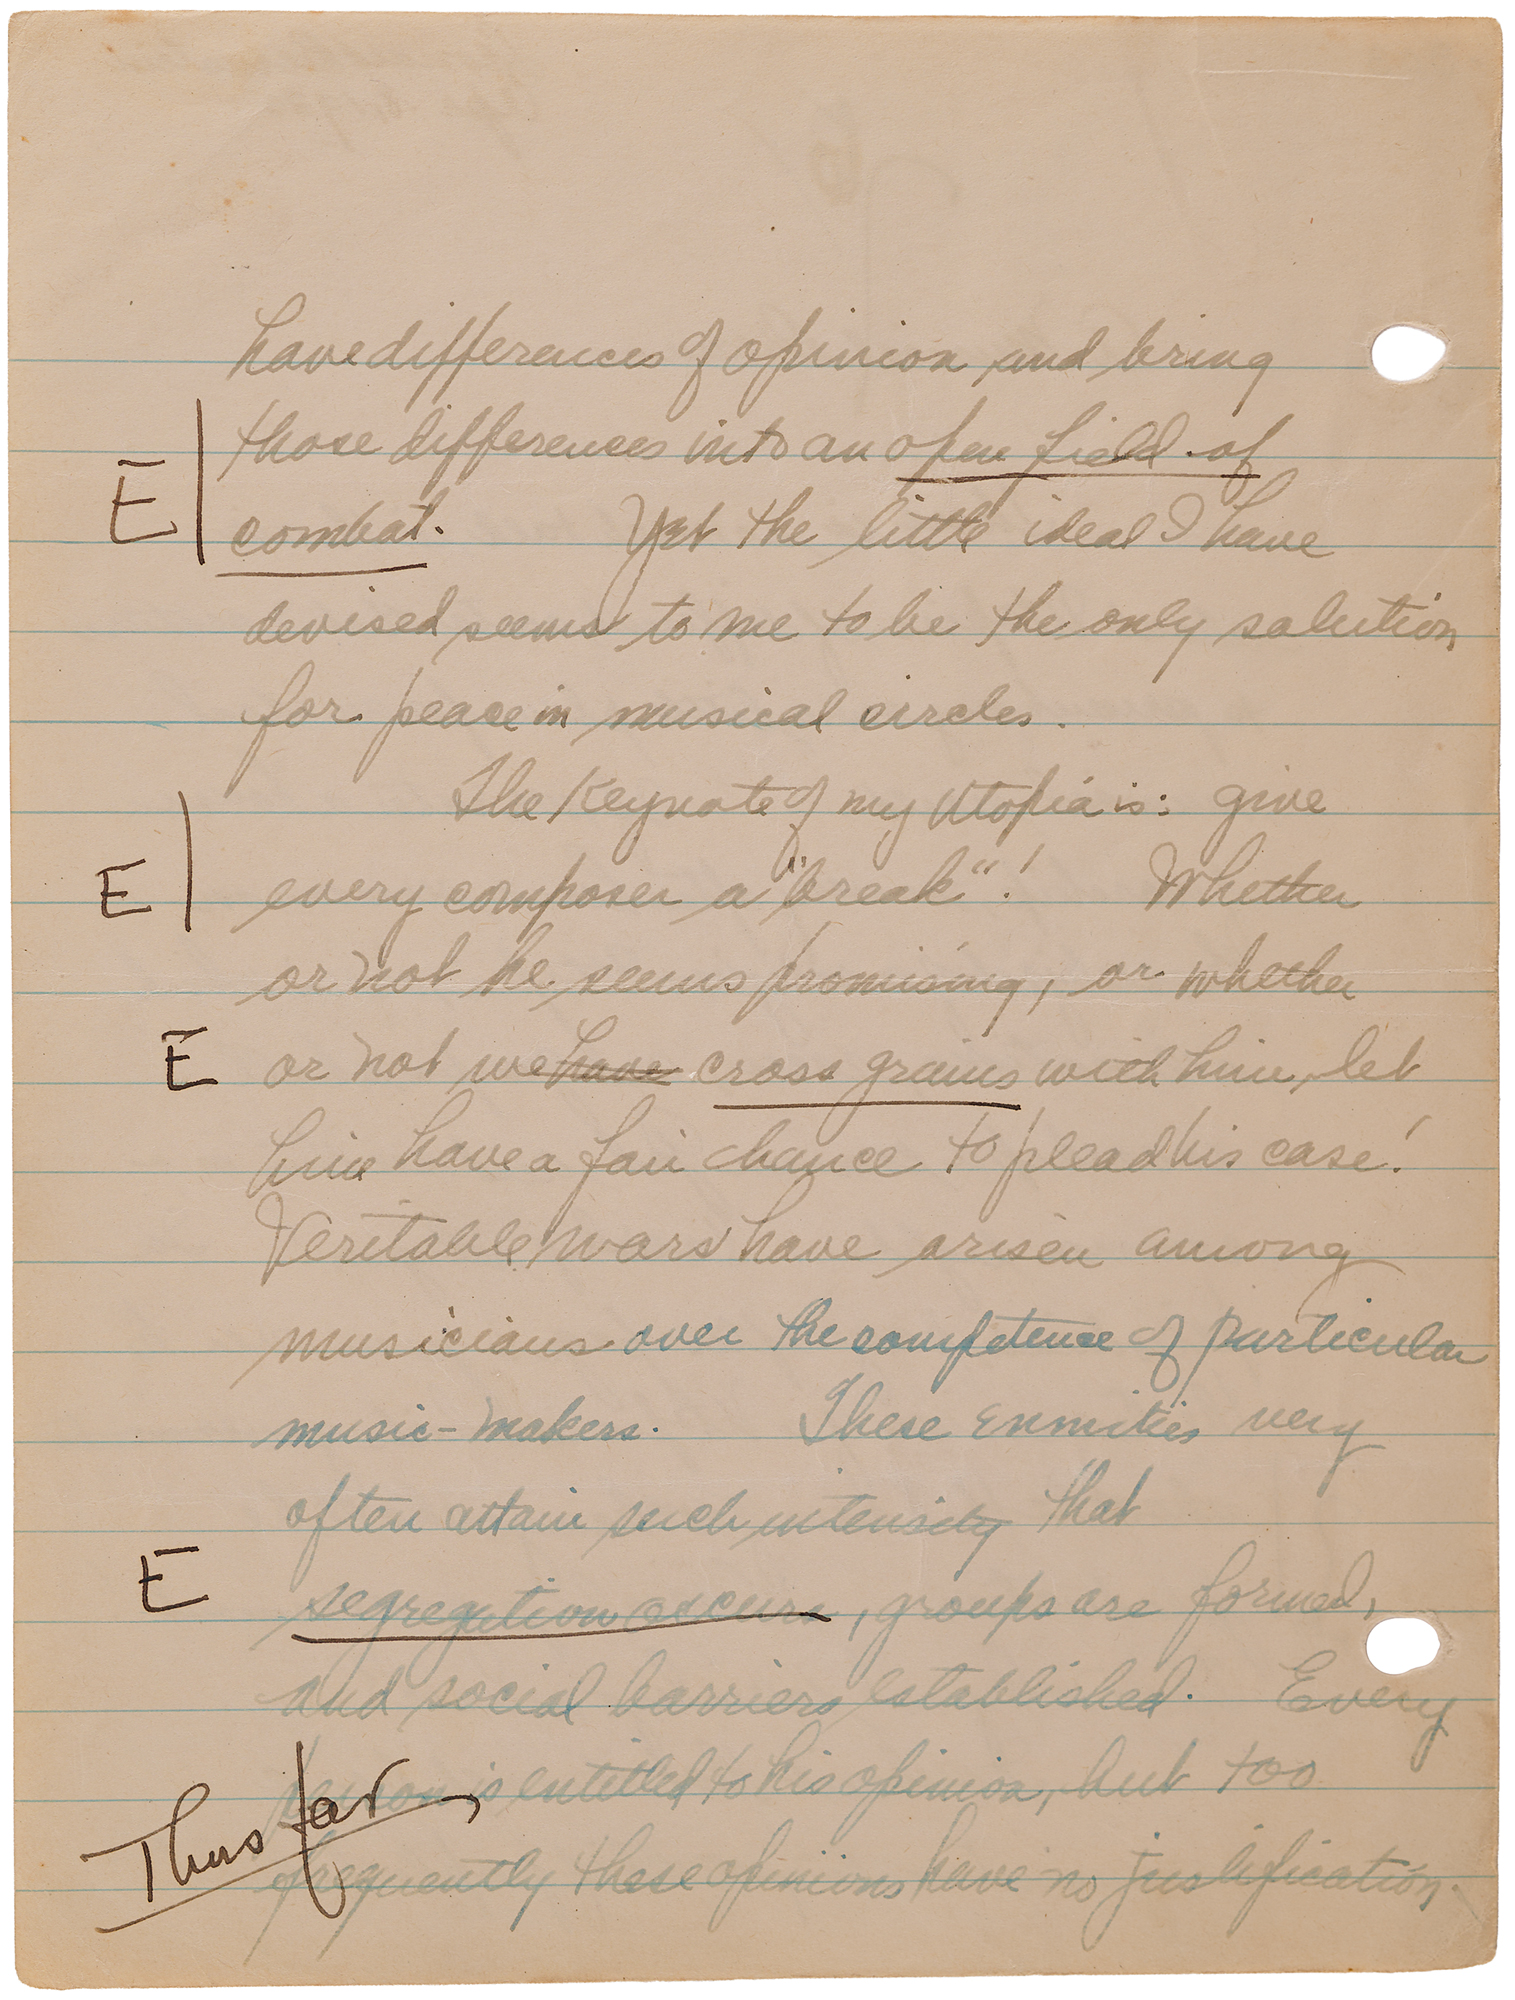 have differences of opinion and bring
E those differences into an open field of
combat. Yet the little ideal I have
devised seems to me to be the only solution
for peace in musical circles.
The Keynote of my Utopia is: give
E every composer a "break"! Whether
or not he seems promising, or whether
E or not we have cross grains with him, let
him have a fair chance to plead his case!
Veritable wars have arisen among
musicians over the competence of particular
music-makers. These enmities very
often attain such intensity that
E segregation occurs, groups are formed,
and social barriers established. Every
person is entitled to his opinion, but too
Thus far
frequently these opinions have no justification.